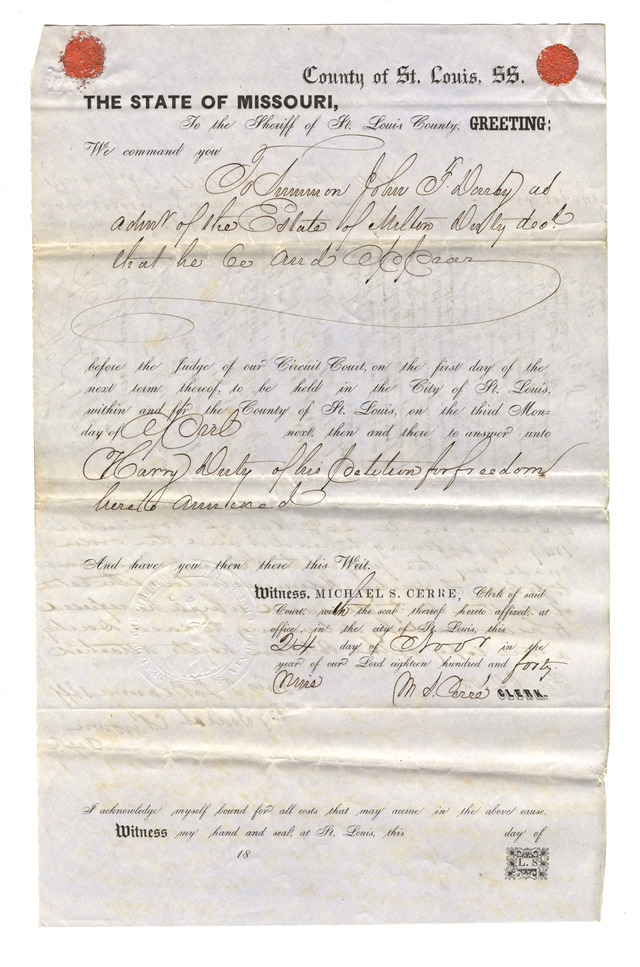 County of St. Louis, SS.
THE STATE OF MISSOURI,
To the Sheriff of St. Louis County, GREETING:
We command you
To Summon John F Darby as
admr of the Estate of Milton Duty decd.
that he be and Appear
before the Judge of our Circuit Court, on the first day of the
next term thereof, to be held in the City of St. Louis,
within and for the County of St. Louis, on the third Mon-
day of April next, then and there to answer unto
Harry Duty of his petition for freedom
hereto annexed
And have you then there this Writ.
Witness, MICHAEL S. CERRE, Clerk of said
Court, with the seal thereof hereto affixed, at
office, in the city of St. Louis, this
24th day of Novr in the
year of our Lord eighteen hundred and forty
Nine M. S. Cerré CLERK.
I acknowledge myself bound for all costs that may accrue in the above cause.
Witness my hand and seal, at St. Louis, this day of
18
L. S.